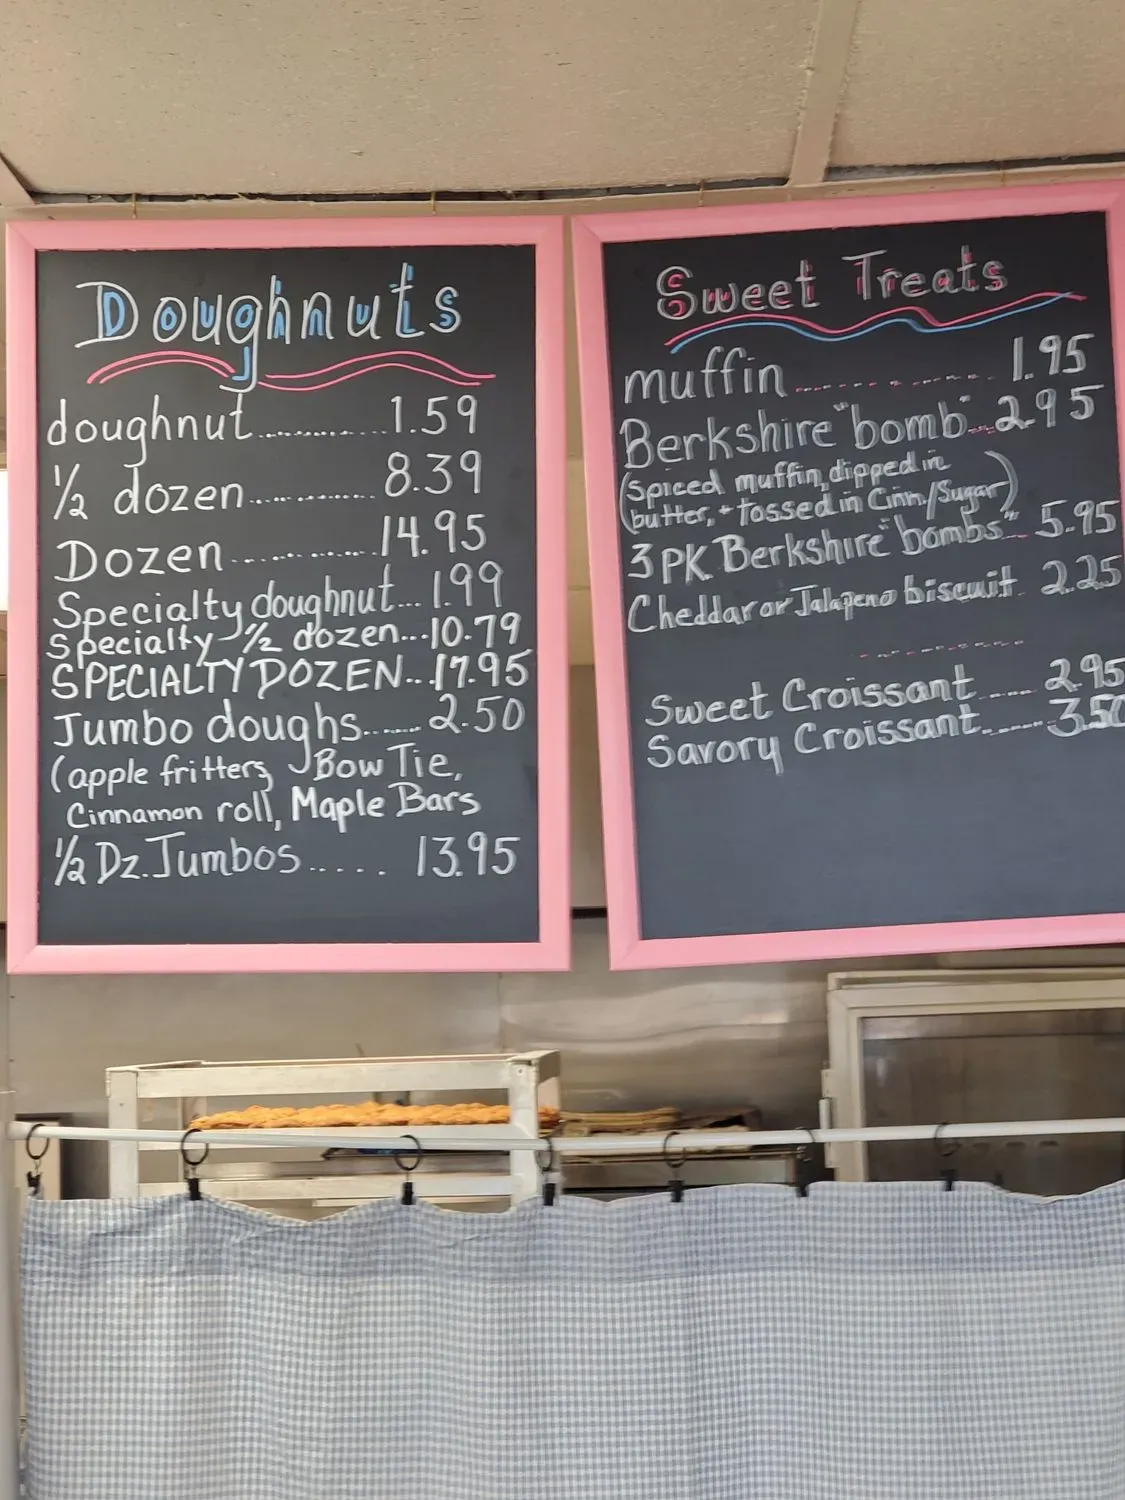 Doughnuts
doughnut..............1.59
1/2 dozen..............8.39
Dozen..............14.95
Specialty doughnut... 1.99
Specialty 1/2 dozen...10.79
SPECIALTY DOZEN...17.95
Jumbo doughs........2.50
(apple fritters, Bow Tie,
Cinnamon roll, Maple Bars
1/2 Dz. Jumbos..... 13.95
Sweet Treats
muffin.............. 1.95
Berkshire "bomb"...2.95
(Spiced muffin, dipped in
butter, + tossed in Cinn./Sugar)
3 PK Berkshire "bombs"... 5.95
Cheddar or Jalapeno biscuit. 2.25
Sweet Croissant...... 2.95
Savory Croissant....... 3.50